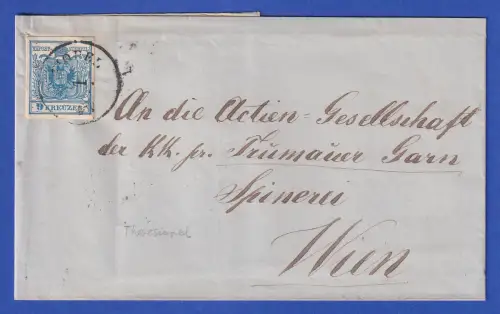 9 KREUZER
An die Actien-Gesellschaft
der KK. pr. Trumauer Garn
Spinerei
Wien